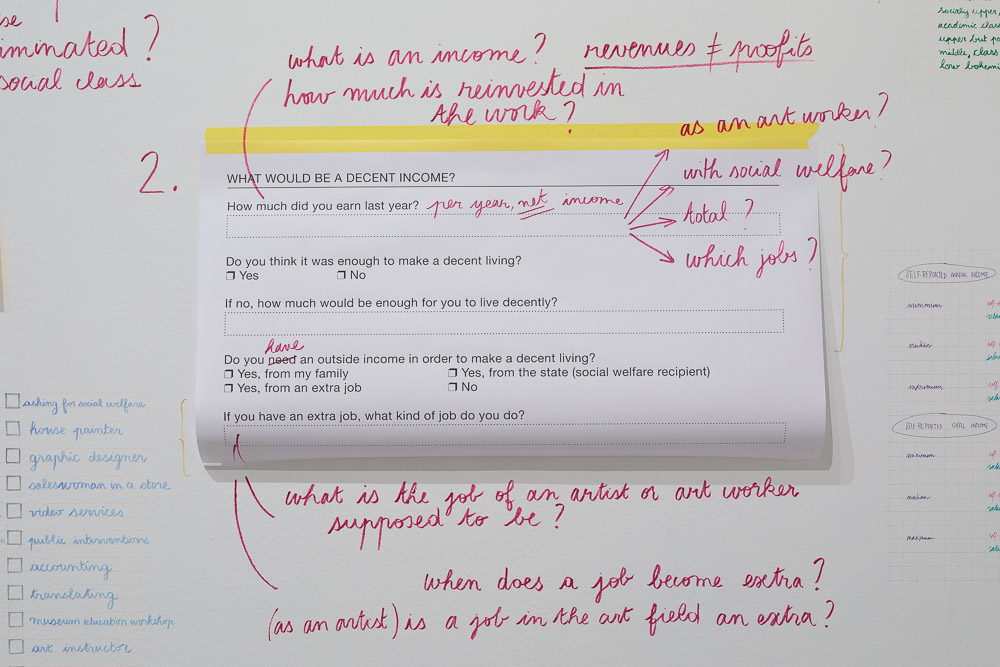 se
iminated?
social class
what is an income? revenues ≠ proofits
how much is reinvested in
the work?
socially upper,
academic clas
upper but po
middle, class
low bohemi
2.
WHAT WOULD BE A DECENT INCOME?
How much did you earn last year? per year, net income
as an art worker?
with social welfare?
total?
which jobs?
Do you think it was enough to make a decent living?
❒ Yes ❒ No
If no, how much would be enough for you to live decently?
have
Do you need an outside income in order to make a decent living?
❒ Yes, from my family ❒ Yes, from the state (social welfare recipient)
❒ Yes, from an extra job ❒ No
If you have an extra job, what kind of job do you do?
what is the job of an artist or art worker
supposed to be?
when does a job become extra?
(as an artist) is a job in the art field an extra?
asking for social welfare
house painter
graphic designer
saleswoman in a store
video services
public interventions
accounting
translating
museum education workshop
art instructor
SELF-REPORTED ANNUAL INCOME
minimum
median
maximum
SELF-REPORTED IDEAL INCOME
minimum
median
maximum